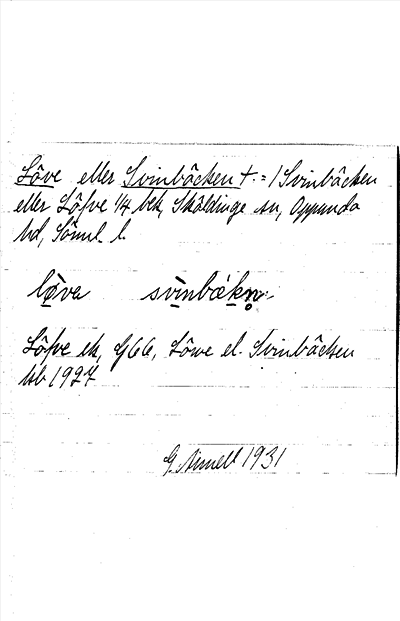 Löve eller Svinbäcken +. = / Svinbäcken
eller Löfve 1/4 bek, Sköldinge sn, Oppunda
hd, Söml. l.
löva svinbäkn
Löfve ek, G66, Löwe el. Svinbäcken
hb 1927
G. Ninnell 1931